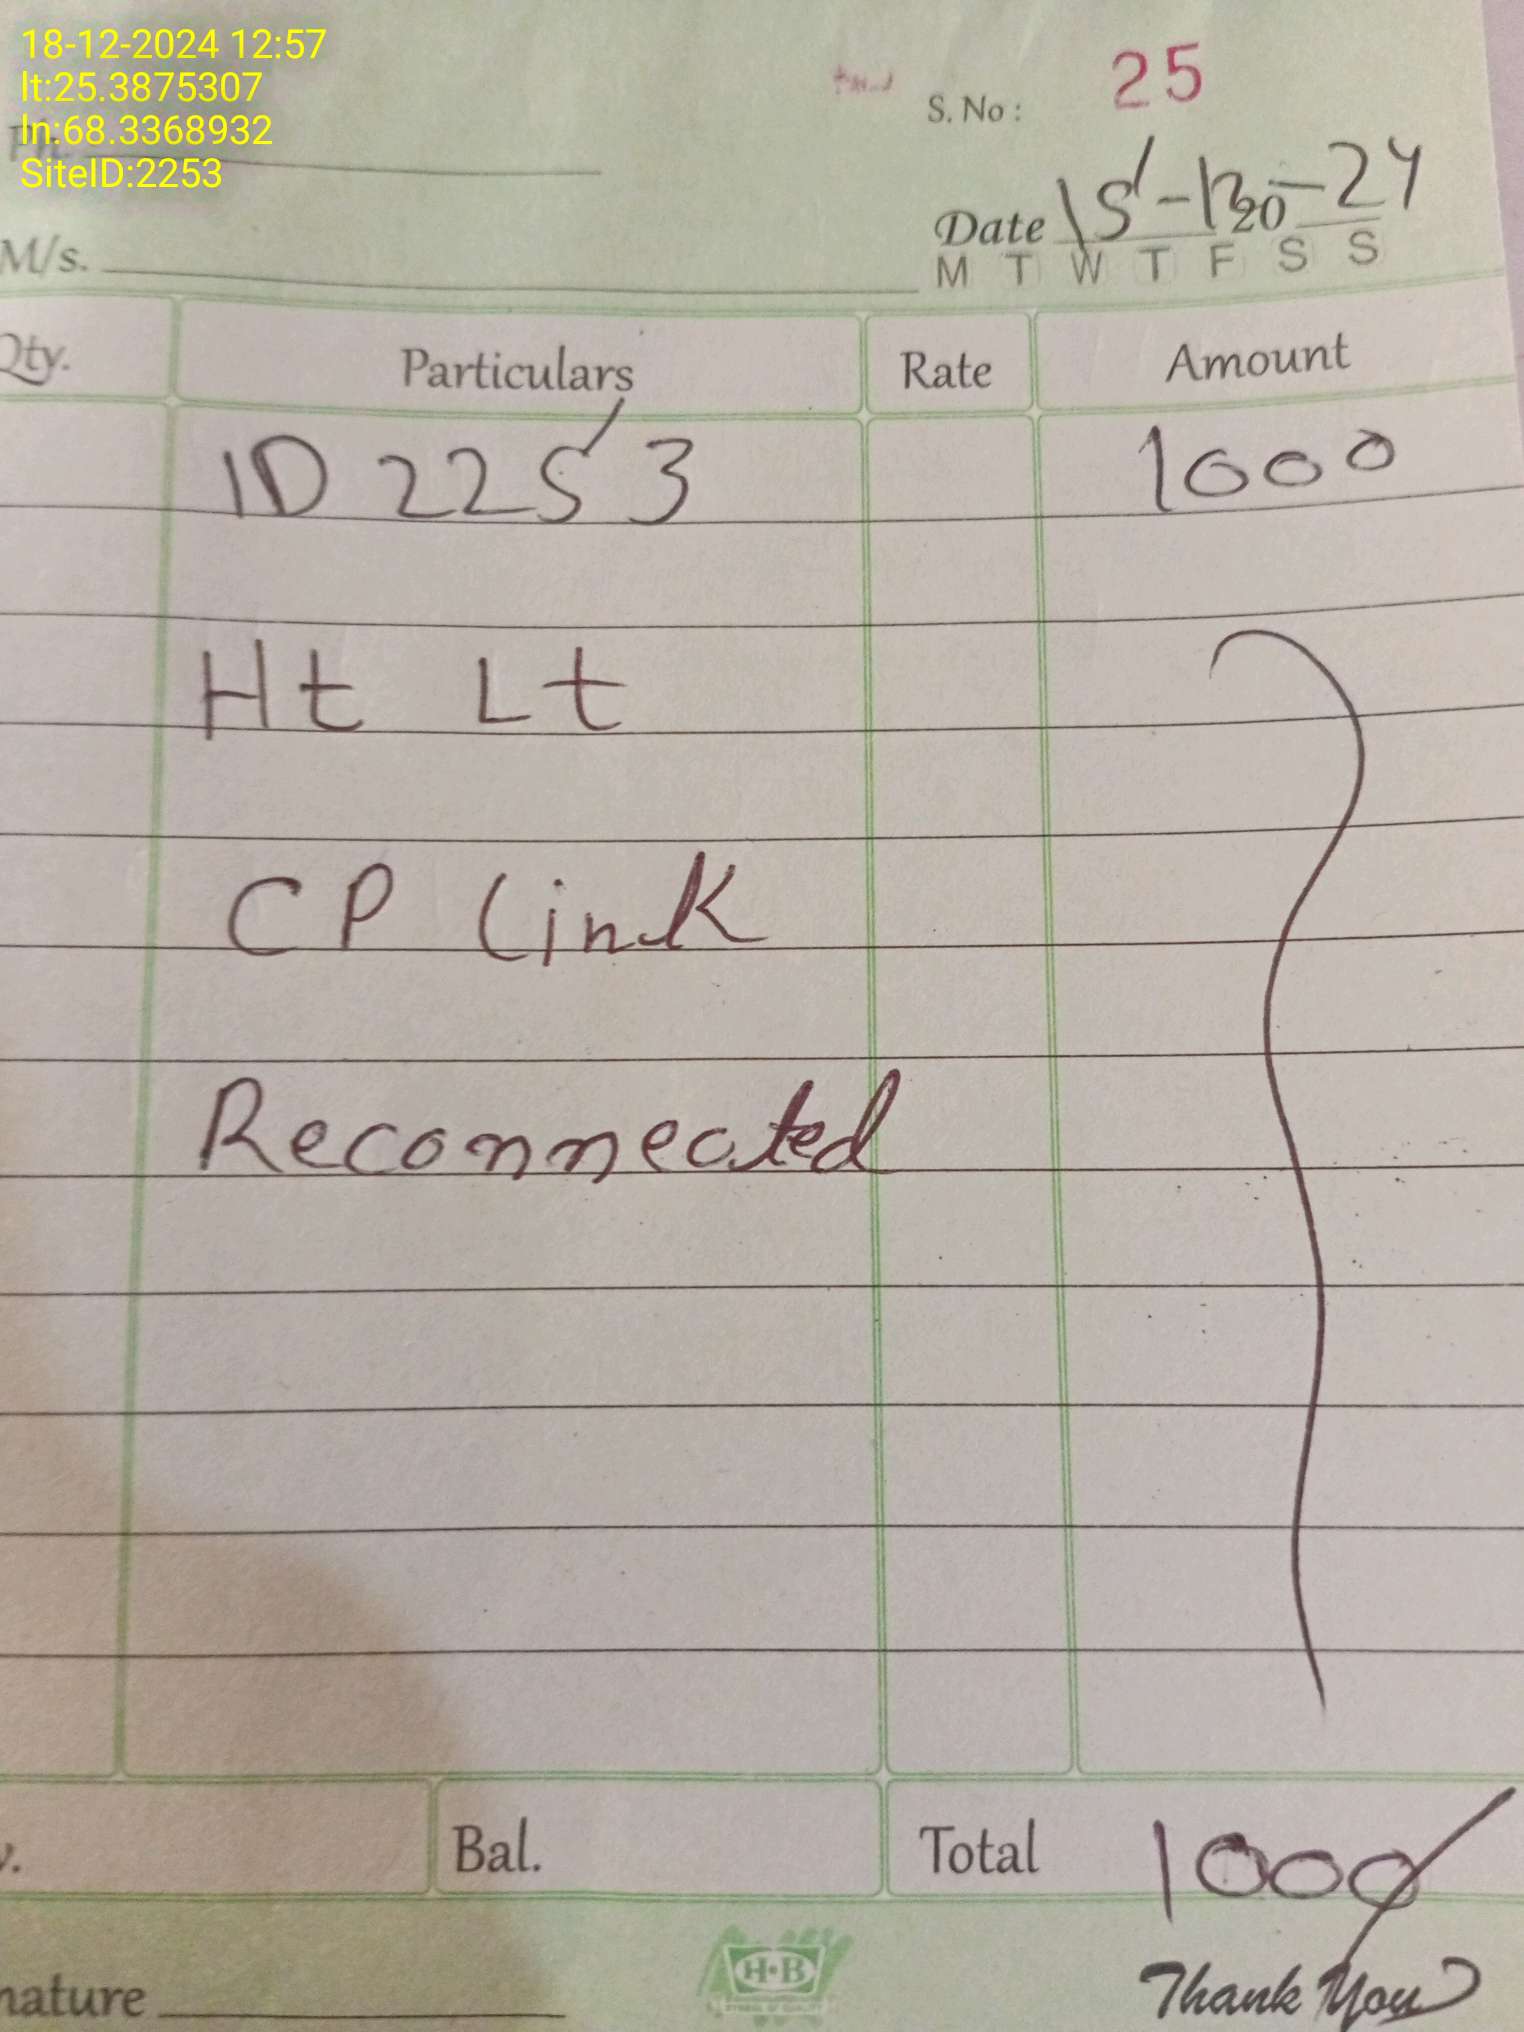 18-12-2024 12:57
lt:25.3875307
ln:68.3368932
SiteID:2253
Ph.
S. No : 25
Date 15-12-20-24
M T W T F S S
M/s.
Qty. Particulars Rate Amount
ID 2253 1000
Ht Lt
CP Link
Reconnected
Bal. Total 1000
H·B
nature
Thank You